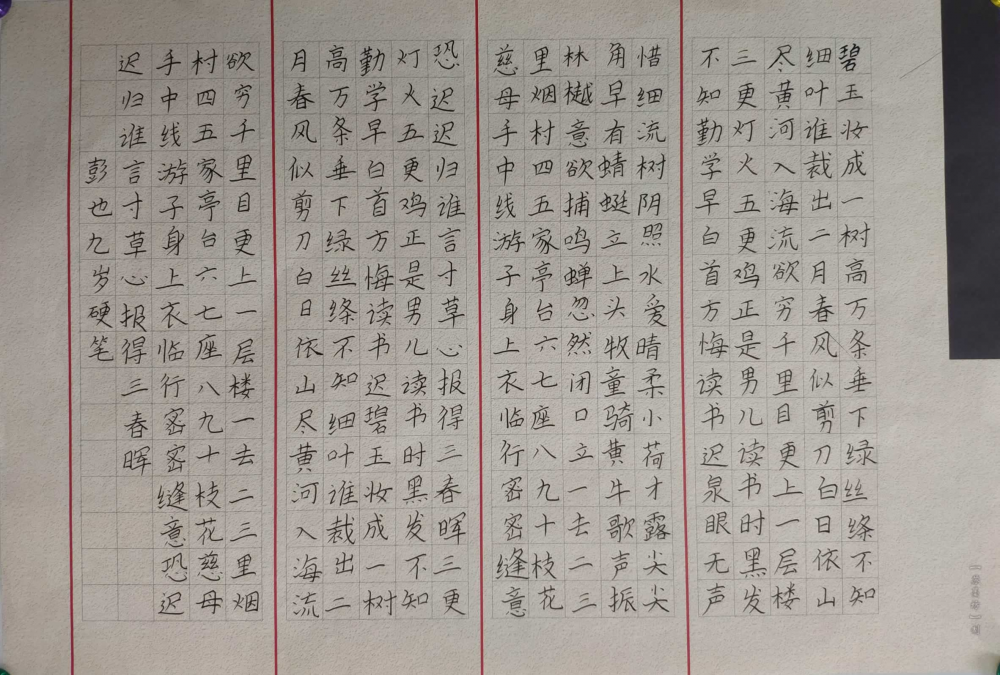 碧玉妆成一树高万条垂下绿丝绦不知
细叶谁裁出二月春风似剪刀白日依山
尽黄河入海流欲穷千里目更上一层楼
三更灯火五更鸡正是男儿读书时黑发
不知勤学早白首方悔读书迟泉眼无声
惜细流树阴照水爱晴柔小荷才露尖尖
角早有蜻蜓立上头牧童骑黄牛歌声振
林樾意欲捕鸣蝉忽然闭口立一去二三
里烟村四五家亭台六七座八九十枝花
慈母手中线游子身上衣临行密密缝意
恐迟迟归谁言寸草心报得三春晖三更
灯火五更鸡正是男儿读书时黑发不知
勤学早白首方悔读书迟碧玉妆成一树
高万条垂下绿丝绦不知细叶谁裁出二
月春风似剪刀白日依山尽黄河入海流
欲穷千里目更上一层楼一去二三里烟
村四五家亭台六七座八九十枝花慈母
手中线游子身上衣临行密密缝意恐迟
迟归谁言寸草心报得三春晖
彭也九岁硬笔